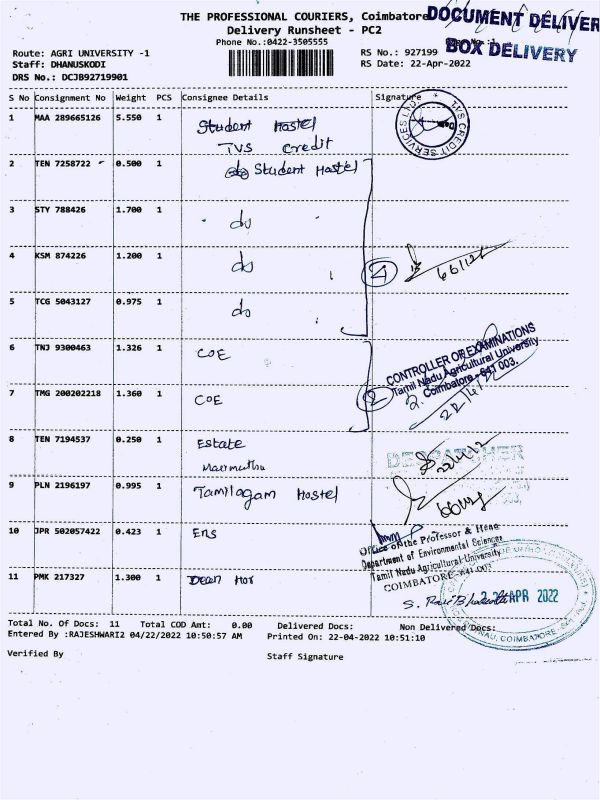 THE PROFESSIONAL COURIERS, Coimbatore
DOCUMENT DELIVER
Delivery Runsheet - PC2
BOX DELIVERY
Phone No.:0422-3505555
Route: AGRI UNIVERSITY -1
RS No.: 927199
Staff: DHANUSKODI
RS Date: 22-Apr-2022
DRS No.: DCJB92719901
S No Consignment No Weight PCS Consignee Details Signature
1 MAA 289665126 5.550 1 Student Hostel
TVS Credit
TVS CREDIT SERVICES LTD.
2 TEN 7258722 0.500 1 Student Hostel
3 STY 788426 1.700 1 do
4 KSM 874226 1.200 1 do
4
5 TCG 5043127 0.975 1 do
6 TNJ 9300463 1.326 1 COE
CONTROLLER OF EXAMINATIONS
Tamil Nadu Agricultural University
Coimbatore - 641 003.
7 TMG 200202218 1.360 1 COE
2
8 TEN 7194537 0.250 1 Estate
Marimuthu
DESPATCHER
9 PLN 2196197 0.995 1 Tamilagam Hostel
10 JPR 502057422 0.423 1 Ens
Office of the Professor & Head
Department of Environmental Sciences
Tamil Nadu Agricultural University
COIMBATORE-641 003
11 PMK 217327 1.300 1 Dean Hor
APR 2022
TNAU, COIMBATORE
Total No. Of Docs: 11 Total COD Amt: 0.00 Delivered Docs: Non Delivered Docs:
Entered By :RAJESHWARI2 04/22/2022 10:50:57 AM Printed On: 22-04-2022 10:51:10
Verified By Staff Signature